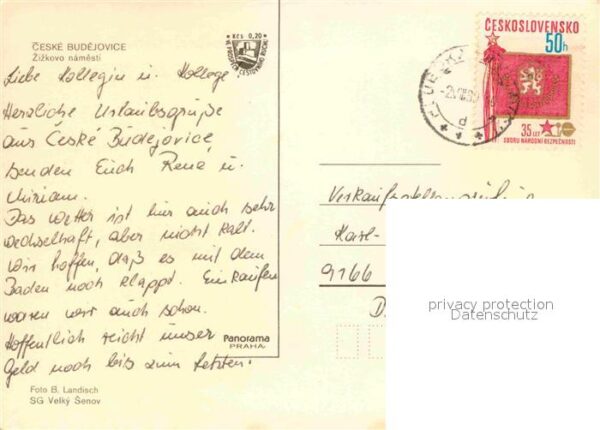 ČESKÉ BUDĚJOVICE
Žižkovo náměstí
Liebe Kollegin u. Kollege
Herzliche Urlaubsgrüße
aus České Budejovice
senden Euch René u.
Miriam.
Das Wetter ist hier auch sehr
wechselhaft, aber nicht kalt.
Wir hoffen, daß es mit dem
Baden noch klappt. Einkaufen
waren wir auch schon.
Hoffentlich reicht unser
Geld noch bis zum letzten.
Foto B. Landisch
SG Velký Šenov
Kčs 0,20
Panorama
PRAHA
ČESKOSLOVENSKO
50h
35 LET
SBORU NÁRODNÍ BEZPEČNOSTI
Karl-
9166
D
privacy protection
Datenschutz